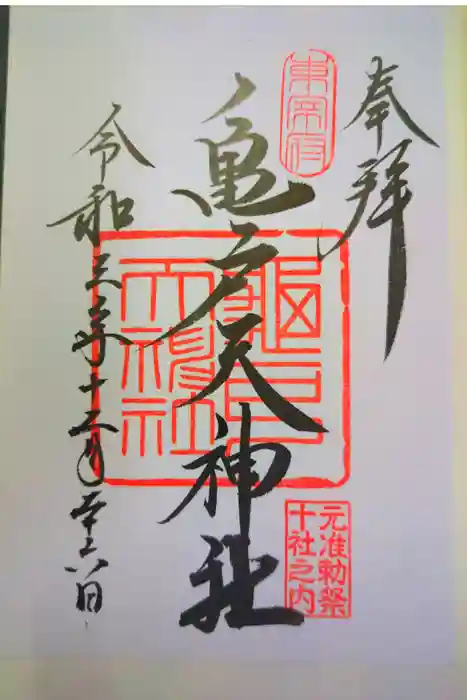 奉拝
東宰府
亀戸天神社
龜戸
天神社
元准勅祭
十社之内
令和三年十二月廿六日